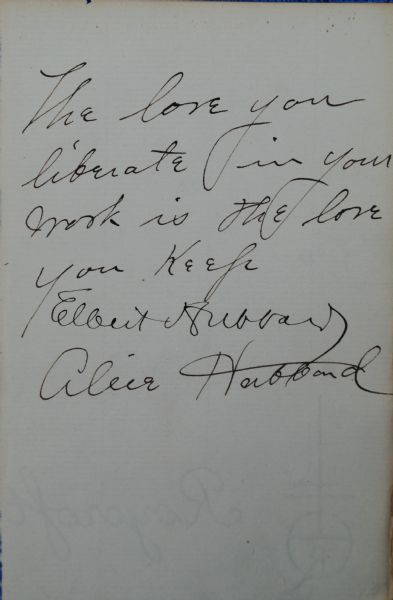 The love you
liberate in your
work is the love
you Keep
Elbert Hubbard
Alice Hubbard
Roycroft